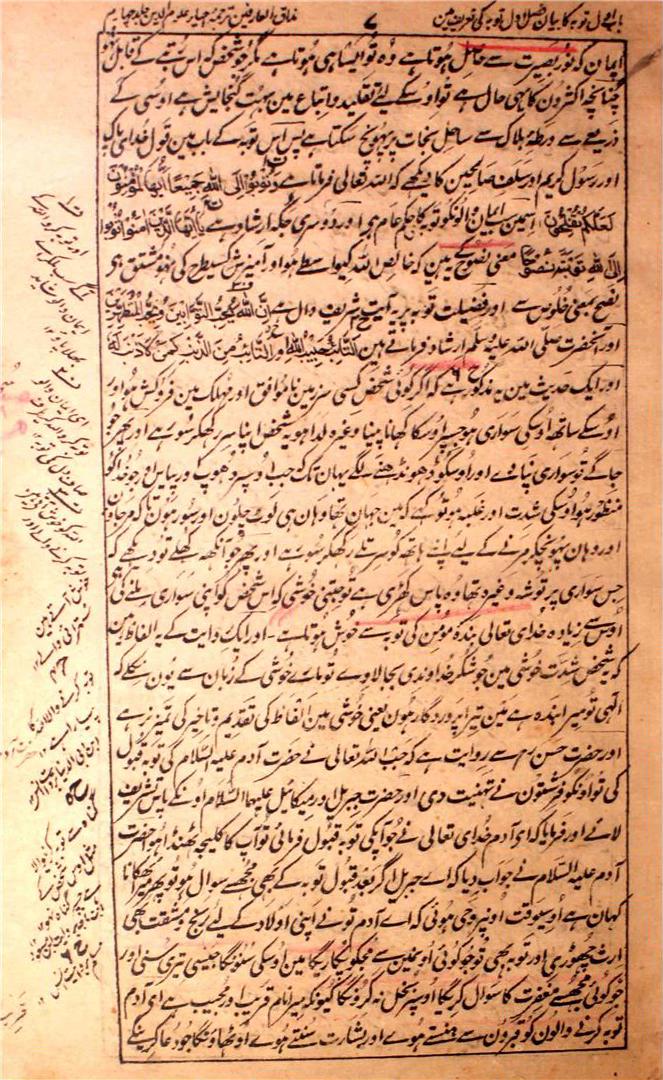 باب اول توبہ کا بیان فصل اول توبہ کی تعریف مین
۷
مذاق العارفین ترجمہ احیاء علوم الدین جلد چہارم
ایمان کہ نور بصیرت سے حاصل ہوتا ہے وہ تو ایسا ہی ہوتا ہے مگر جو شخص کہ اس رتبے کے قابل نہو
چنانچہ اکثرون کا یہی حال ہے تو اوسکے لیے تقلید و اتباع مین بہت گنجایش ہے اوسی کے
ذریعے سے ورطۂ ہلاک سے ساحل نجات پر پہونچ سکتا ہے پس اس توبہ کے باب مین قول خدای پاک
اور رسول کریم اور سلف صالحین کا دیکھے کہ اللہ تعالی فرماتا ہے وتوبوا الی اللہ جمیعا ایھا المؤمنون
لعلکم تفلحون اسمین سب ایمان والونکو توبہ کا حکم عام ہی اور دوسری جگہ ارشاد ہے یا ایھا الذین امنوا توبوا
الی اللہ توبۃ نصوحا معنی نصوح کے یہ ہین کہ خالص اللہ کیواسطے ہو اور آمیزش کسیطرح کی نہو مشتق ہی
نصح بمعنی خلوص سے اور فضیلت توبہ پر یہ آیت شریف دال ہے ان اللہ یحب التوابین ویحب المتطھرین
اور آنحضرت صلی اللہ علیہ وسلم ارشاد فرماتے ہین التائب حبیب اللہ والتائب من الذنب کمن لا ذنب لہ
اور ایک حدیث مین یہ مذکور ہے کہ اگر کوئی شخص کسی سرزمین ناموافق اور مہلک مین فروکش ہو اور
اوسکے ساتھ اوسکی سواری ہو جسپر اوسکا کھانا پینا وغیرہ لدا ہو یہ شخص اپنا سر رکھکر سو رہے اور پھر جو
جاگے تو سواری نپاوے اور اوسکو ڈھونڈھنے لگے یہان تک کہ جب اوسپر دھوپ اور پیاس اور جو خدا کو
منظور ہو اوسکی شدت اور غلبہ ہو تو کہے کہ مین جہان تھا وہان ہی لوٹ چلون اور سو رہون تاکہ مرجاون
اور وہان پہونچکر مرنے کے لیے اپنے ہاتھ کو سرتلے رکھکر سووے اور پھر جو آنکھ کھلے تو دیکھے کہ
جس سواری پر توشہ وغیرہ تھا وہ پاس کھڑی ہے تو جتنی خوشی کہ اس شخص کو اپنی سواری ملنے کی
اوس سے زیادہ خدای تعالی بندۂ مؤمن کی توبہ سے خوش ہوتا ہے۔ اور ایک روایت کے یہ الفاظ ہین
کہ یہ شخص شدت خوشی مین جو شکر خداوندی بجا لاوے تو مارے خوشی کے زبان سے یون نکلے کہ
الہی تو میرا بندہ ہے مین تیرا پروردگار ہون یعنی خوشی مین الفاظ کی تقدیم و تاخیر کی تمیز نرہے
اور حضرت حسن رح سے روایت ہے کہ جب اللہ تعالی نے حضرت آدم علیہ السلام کی توبہ قبول
کی تو اونکو فرشتون نے تہنیت دی اور حضرت جبریل اور میکائیل علیہما السلام اونکے پاس تشریف
لائے اور فرمایا کہ ای آدم خدای تعالی نے جو آپکی توبہ قبول فرمائی تو آپ کا کلیجہ ٹھنڈا ہوا حضرت
آدم علیہ السلام نے جواب دیا کہ اے جبریل اگر بعد قبول توبہ کے بھی مجھسے سوال ہو تو پھر میرا ٹھکانا
کہان ہے اوسیوقت اونپر وحی ہوئی کہ اے آدم تو نے اپنی اولاد کے لیے رنج و مشقت بھی
ارث چھوڑی اور توبہ بھی تو جو کوئی اونمین سے مجھکو پکاریگا مین اوسکی سنونگا جیسی تیری سنی اور
جو کوئی مجھسے مغفرت کا سوال کریگا اوسپر بخل نہ کرونگا کیونکہ میرا نام قریب اور مجیب ہے ای آدم
توبہ کرنے والون کو قبرون سے ہنستے ہوے اور بشارت سنتے ہوے اوٹھاونگا جو دعا کرینگے